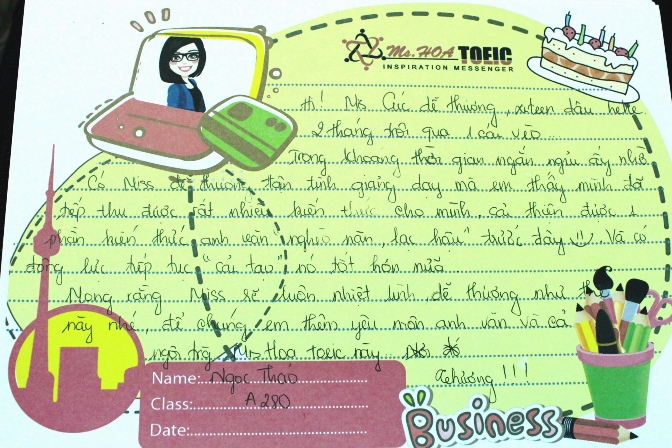 Ms. HOA TOEIC
INSPIRATION MESSENGER
Hi! Ms Cúc dễ thương, xiteen dâu hehe
2 tháng trôi qua 1 cái vèo...
Trong khoảng thời gian ngắn ngủi ấy nhờ
Có Miss dễ thương tận tình giảng dạy mà em thấy mình đã
tiếp thu được rất nhiều kiến thức cho mình, cải thiện được 1
phần kiến thức anh văn "nghèo nàn, lạc hậu" trước đây. Và có
động lực tiếp tục "cải tạo" nó tốt hơn nữa
Mong rằng Miss sẽ luôn nhiệt tình dễ thương như
này nhé, để chúng em thêm yêu môn anh văn và cả
ngôi trg Ms Hoa toeic này
Thương!!!
Name: Ngọc Thảo
Class: A280
Date:
Business